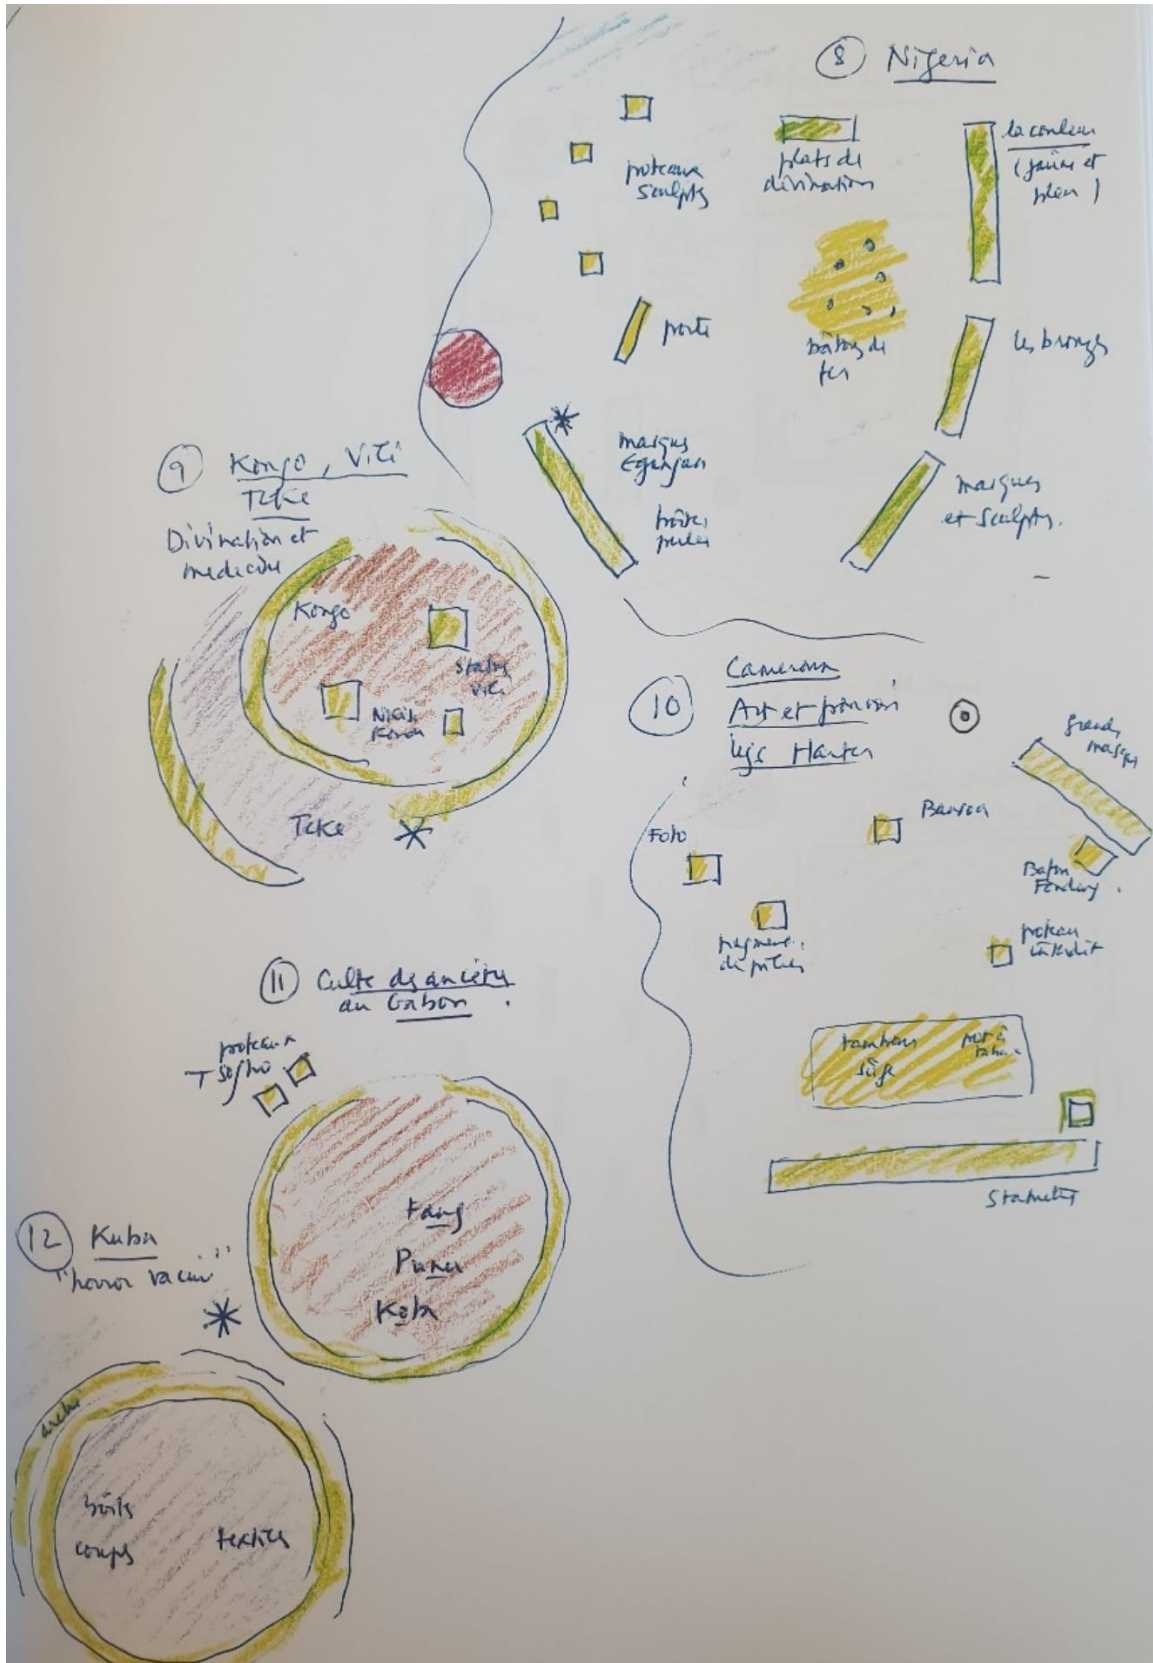 8 Nigeria
poteaux
sculpts
plats de
divination
la couleur
(jaune et
bleu)
porte
bâtons de
fer
les bronzes
masques
Egungun
boîtes
perles
masques
et sculpts.
9 Kongo, Vili
Teke
Divination et
médecine
Kongo
Vili
Teke
10 Cameroun
Art et pouvoir
legs Harter
grands
masques
Foto
Bafum
fragment
de piliers
poteau
interdit
tambours
siège
pot à
statuettes
11 Culte des ancêtres
au Gabon.
poteaux
Tsogho
Fang
Punu
Kota
12 Kuba
"horror vacui"
boîtes
coupes
textiles